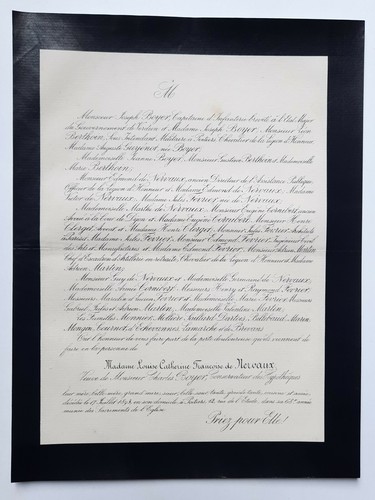 M
Monsieur Joseph Boyer, Capitaine d'Infanterie breveté à l'Etat Major
du Gouvernement de Verdun et Madame Joseph Boyer, Monsieur Léon
Berthoin, Sous Intendant Militaire à Poitiers Chevalier de la Légion d'Honneur
Madame Auguste Guyonet née Boyer,
Mademoiselle Jeanne Boyer, Monsieur Gustave Berthoin, Mademoiselle
Marie Berthoin,
Monsieur Edmond de Nervaux, ancien Directeur de l'Assistance Publique,
Officier de la Légion d'Honneur et Madame Edmond de Nervaux, Madame
Victor de Nervaux, Madame Jules Février née de Nervaux,
Mademoiselle Marthe de Nervaux, Monsieur Eugène Cornibert ancien
Avoué à la Cour de Dijon et Madame Eugène Cornibert, Monsieur Henri
Clerget Avocat et Madame Henri Clerget, Monsieur Jules Février Architecte
Madame Jules Février, Monsieur Edmond Février, Ingénieur Civil
des Arts et Manufactures et Madame Edmond Février, Monsieur Adrien Martin
Chef d'Escadron d'Artillerie en retraite, Chevalier de la Légion d'Honneur et Madame
Adrien Martin,
Monsieur Guy de Nervaux et Mademoiselle Germaine de Nervaux,
Mademoiselle Annie Cornibert, Messieurs Henry et Raymond Février
Messieurs Maurice et Lucien Février et Mademoiselle Marie Février, Messieurs
Gabriel, Jules et Adrien Martin, Mademoiselle Valentine Martin,
Les Familles Monnier, Millière
Mongin, Fournet, d'Echevannes, Lamarche et de Broons
Ont l'honneur de vous faire part de la perte douloureuse qu'ils viennent de
faire en la personne de
Madame Louise Catherine Françoise de Nervaux
Veuve de Monsieur Charles Boyer, Conservateur des Hypothèques
leur mère, belle-mère, grand'mère, soeur, belle-soeur, tante, grande-tante, cousine et amie,
décédée le 17 Juillet 1893, en son domicile à Poitiers, 12, rue de l'Etude, dans sa 63e année
munie des Sacrements de l'Eglise.
Priez pour Elle!